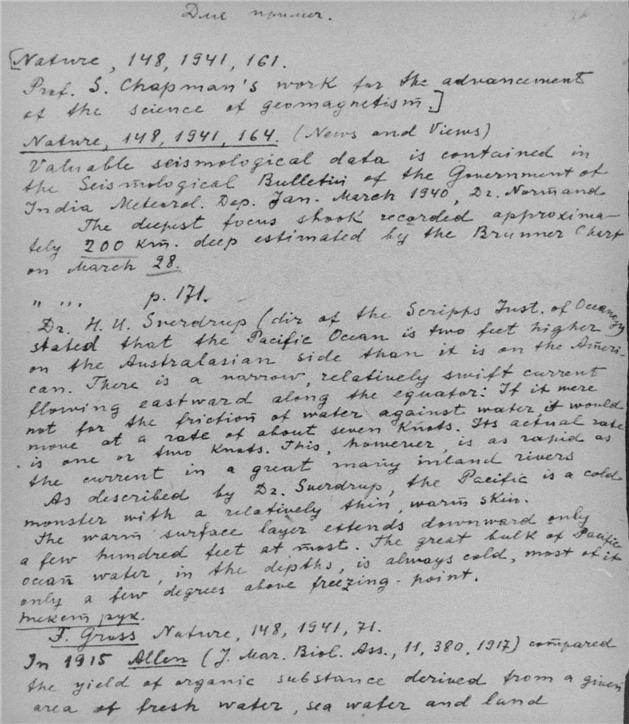 Для примет.
[Nature, 148, 1941, 161.
Prof. S. Chapman's work for the advancement
of the science of geomagnetism]
Nature, 148, 1941, 164. (News and Views)
Valuable seismological data is contained in
the Seismological Bulletin of the Government of
India Meteorol. Dep. Jan. March 1940, Dr. Normand
The deepest focus shook recorded approxima-
tely 200 km. deep estimated by the Brunner Chart
on March 28.
" " " p. 171.
Dr. H. U. Sverdrup (dir of the Scripps Inst. of Oceanogr
stated that the Pacific Ocean is two feet higher
on the Australasian side than it is on the Ameri-
can. There is a narrow, relatively swift current
flowing eastward along the equator: If it were
not for the friction of water against water, it would
move at a rate of about seven knots. Its actual rate
is one or two knots. This, however, is as rapid as
the current in a great many inland rivers
As described by Dr. Sverdrup, the Pacific is a cold
monster with a relatively thin, warm skin.
The warm surface layer extends downward only
a few hundred feet at most. The great bulk of Pacific
ocean water, in the depths, is always cold, most of it
only a few degrees above freezing-point.
текст рук.
F. Gross Nature, 148, 1941, 71.
In 1915 Allen (J. Mar. Biol. Ass., 11, 380, 1917) compared
the yield of organic substance derived from a given
area of fresh water, sea water and land